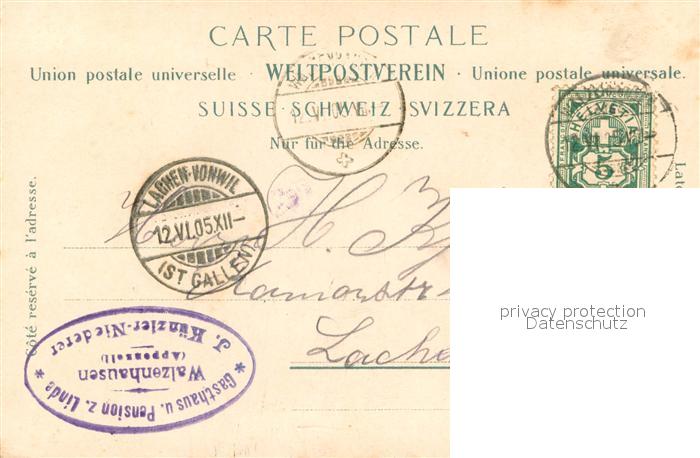 CARTE POSTALE
Union postale universelle · WELTPOSTVEREIN · Unione postale universale.
SUISSE · SCHWEIZ · SVIZZERA
Nur für die Adresse.
Côté reservé à l'adresse.
HELVETIA
5
LACHEN-VONWIL
12.VI.05.XII-
(ST GALLEN)
12.VI.05
H.
Lache
privacy protection
Datenschutz
* Gasthaus u. Pension z. Linde *
Walzenhausen
(Appenzell)
J. Künzler-Niederer